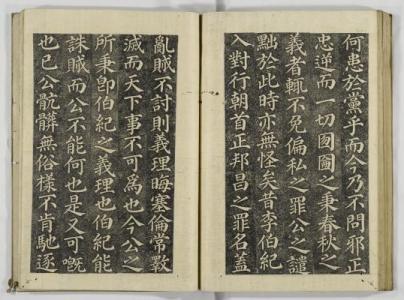 何患於黨乎而今乃不問邪正
忠逆而一切囫圇之秉春秋之
義者輒不免偏私之罪公之譴
黜於此時亦無怪矣昔李伯紀
入對行朝首正邦昌之罪名蓋
亂賊不討則義理晦塞倫常斁
滅而天下事不可為也今公之
所秉卽伯紀之義理也伯紀能
誅賊而公不能何也是又可嘅
也已公骯髒無俗樣不肯馳逐